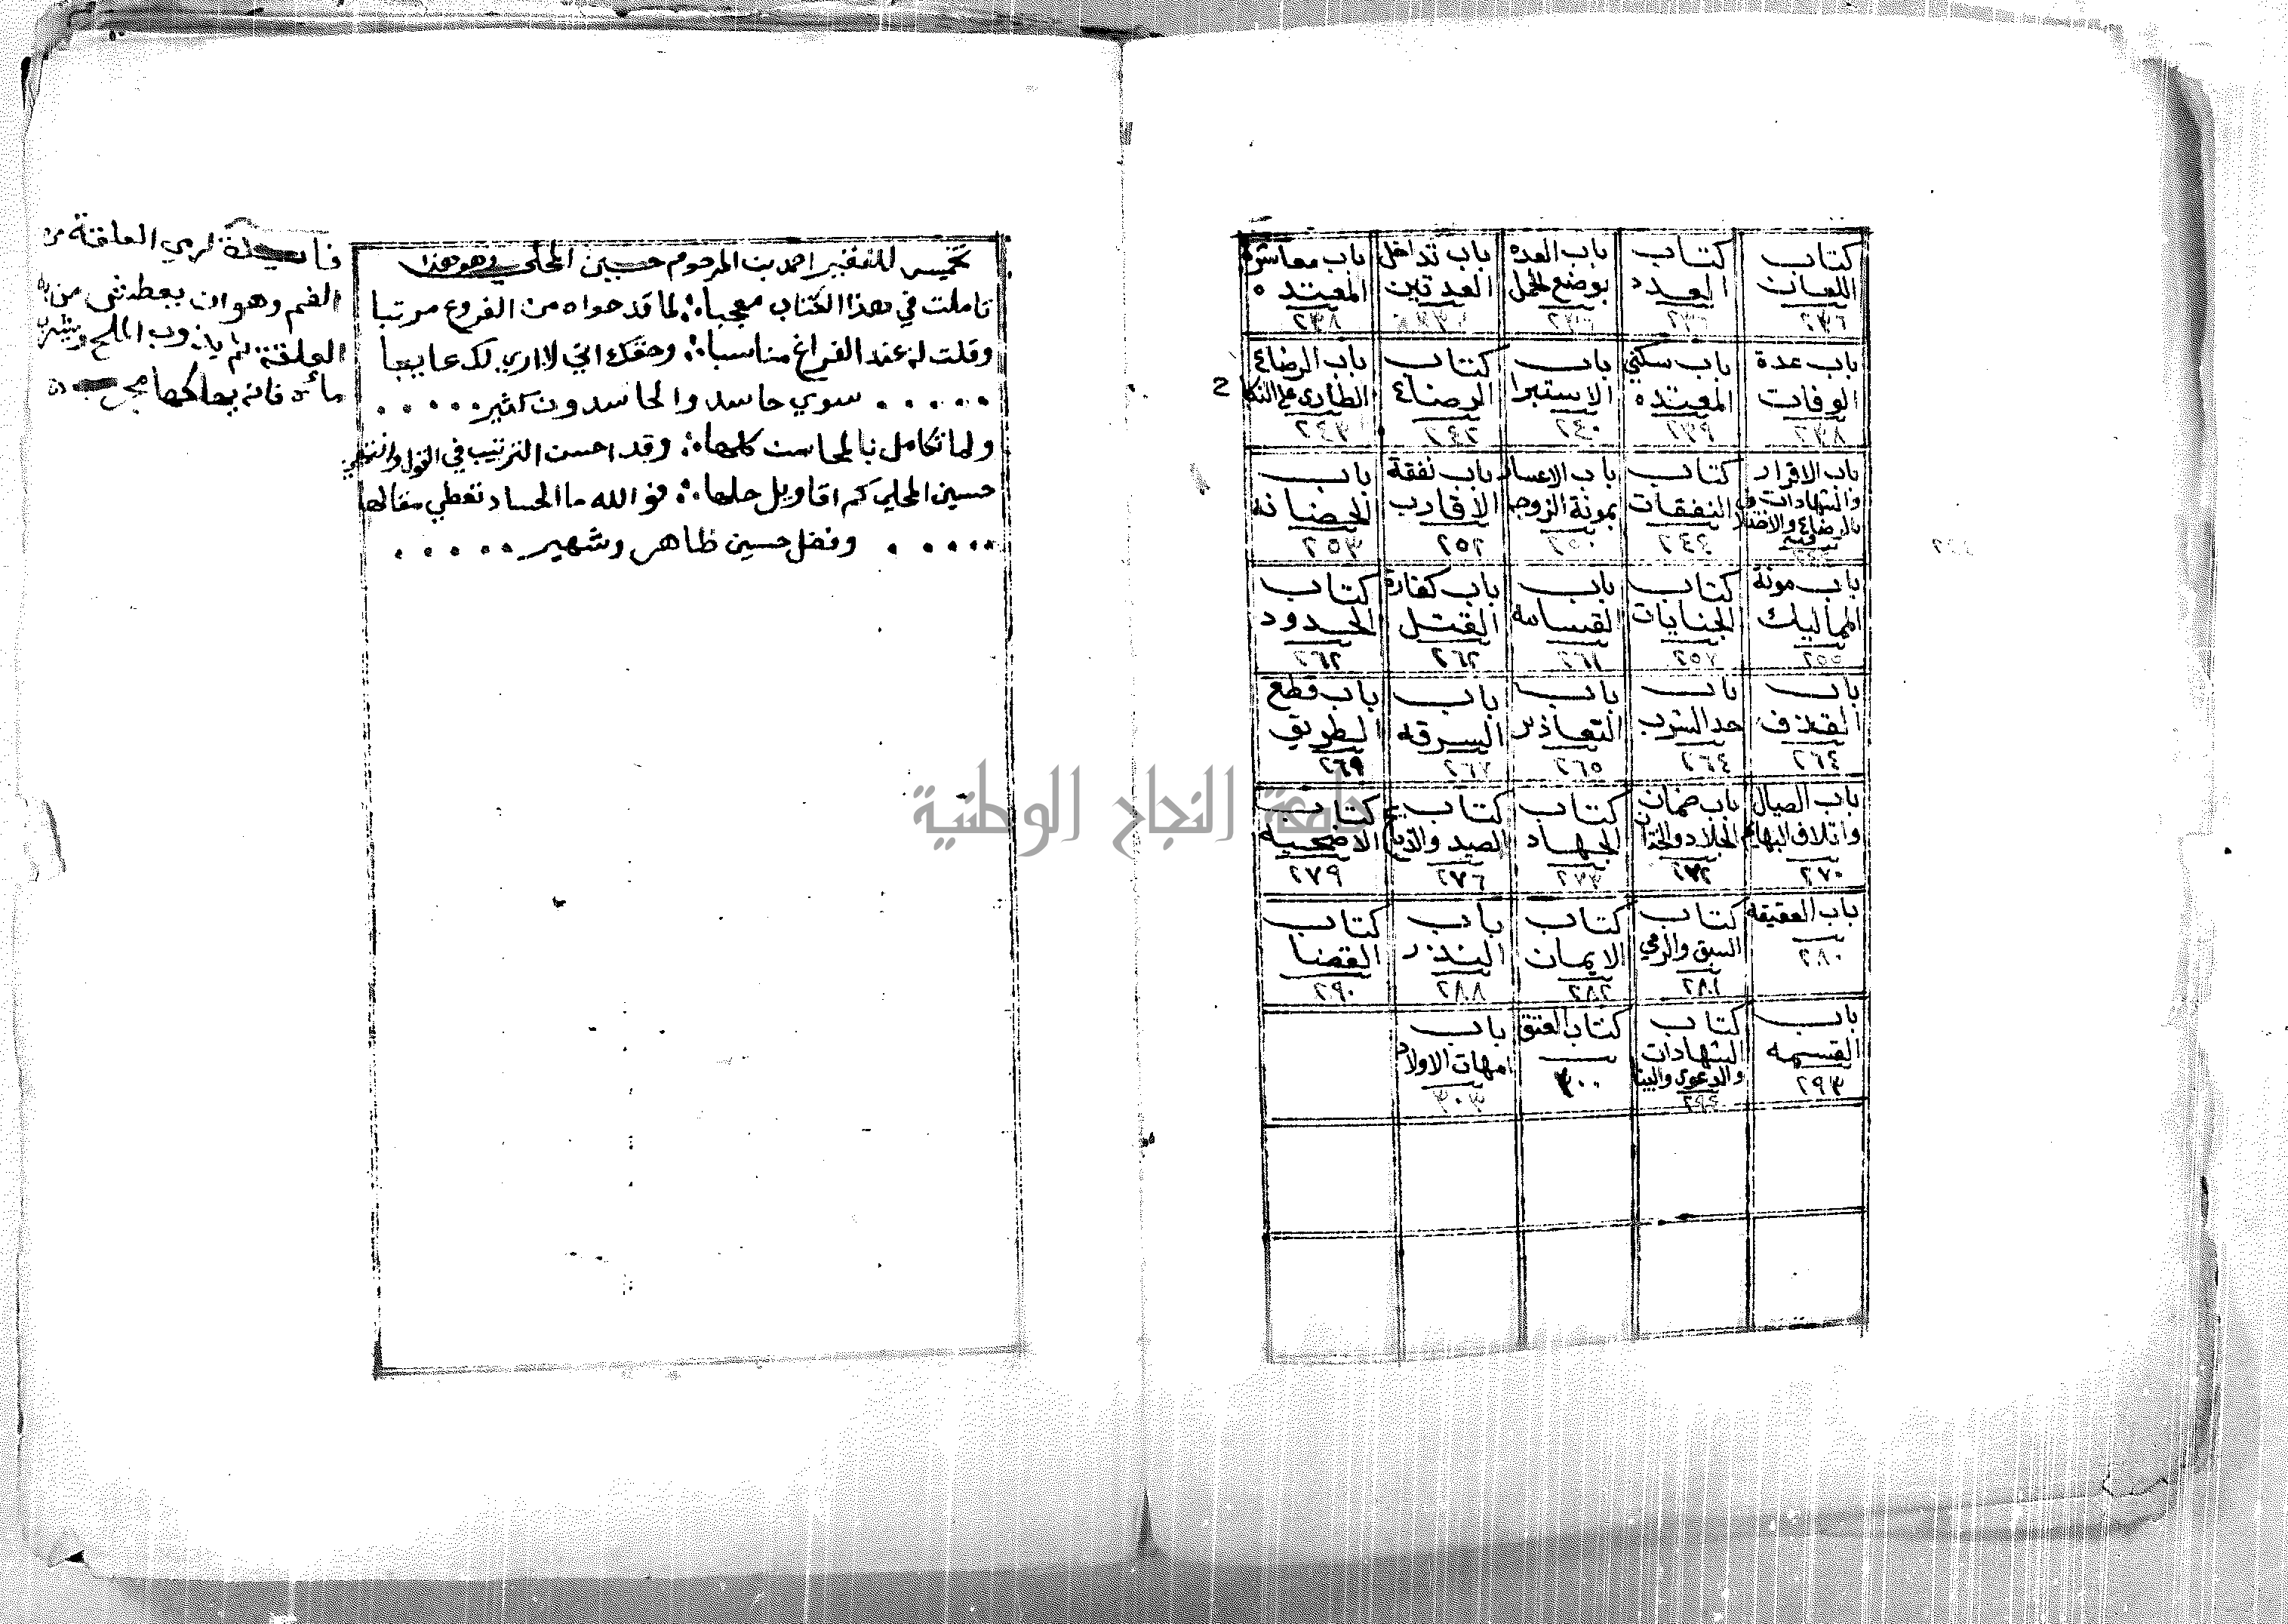 كتاب اللعان ٢٣٦
كتاب العدد ٢٣٦
باب العدة بوضع الحمل ٢٣٦
باب تداخل العدتين
باب معاشرة المعتده ٢٣٨
باب عدة الوفات ٢٣٨
باب سكني المعتده ٢٣٩
باب الاستبرا ٢٤٠
كتاب الرضاع ٢٤٢
باب الرضاع الطاري ع النكا ٢٤٣
باب الاقرار والشهادات في الرضاع والاختلاف فيه
كتاب النفقات ٢٤٤
باب الاعسار بمونة الزوجه ٢٥٠
باب نفقة الاقارب ٢٥٢
باب الحضانه ٢٥٣
باب مونة المماليك ٢٥٥
كتاب الجنايات ٢٥٧
باب القسامه ٢٦١
باب كفارة القتل ٢٦٢
كتاب الحدود ٢٦٢
باب القذف ٢٦٤
باب حد الشرب ٢٦٤
باب التعاذير ٢٦٥
باب السرقه ٢٦٧
باب قطع الطريق ٢٦٩
باب الصيال واتلاف البهايم ٢٧٠
باب ضمان الجلاد والختان ٢٧٢
كتاب الجهاد ٢٧٣
كتاب الصيد والذبايح ٢٧٦
كتاب الاضحيه ٢٧٩
باب العقيقه ٢٨٠
كتاب السبق والرمي ٢٨١
كتاب الايمان ٢٨٢
باب النذر ٢٨٨
كتاب القضا ٢٩٠
باب القسمه ٢٩٣
كتاب الشهادات والدعوي والبينا ٢٩٤
كتاب العتق ٣٠٠
باب امهات الاولاد ٣٠٣
تخميس للفقير احمد بن المرحوم حسين المحلي وهو هذا
تاملت في هذا الكتاب معجبا ∴ لما قد حواه من الفروع مرتبا
وقلت له عند الفراغ مناسبا ∴ وحقك اني لا اري لك عايبا
سوي حاسد والحاسدون كثير
ولما تكامل بالمحاسن كلها ∴ وقد احسن الترتيب في القول والنهي
حسين المحلي كم اقاويل حلها ∴ فو الله ما الحساد تغطي مقالها
وفضل حسين ظاهر وشهير
فايدة لرمي العلقة من
الفم وهو ان يعطش من به
العلقة ثم يذوب الملح ويشرب
مائه فانه يهلكها مجرب
جامعة النجاح الوطنية